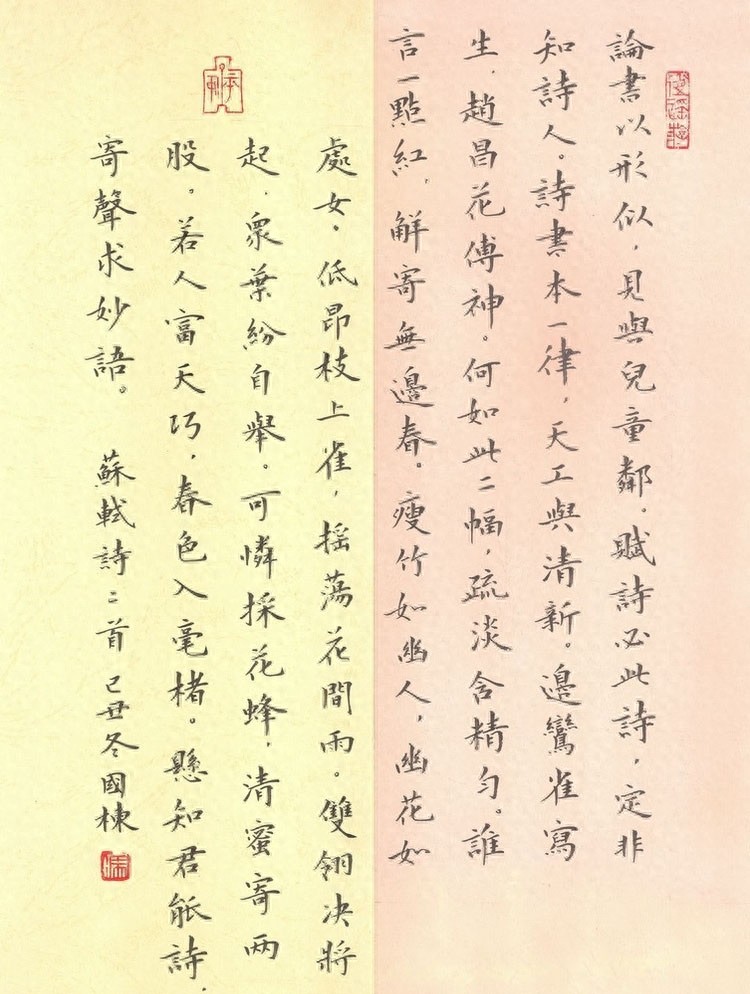 論書以形似，見與兒童鄰。賦詩必此詩，定非
知詩人。詩書本一律，天工與清新。邊鸞雀寫
生，趙昌花傅神。何如此二幅，疏淡含精勻。誰
言一點紅，解寄無邊春。瘦竹如幽人，幽花如
處女。低昂枝上雀，搖蕩花間雨。雙翎決將
起，眾葉紛自舉。可憐採花蜂，清蜜寄兩
股。若人富天巧，春色入毫楮。懸知君能詩，
寄聲求妙語。 蘇軾詩二首 己丑冬國棟